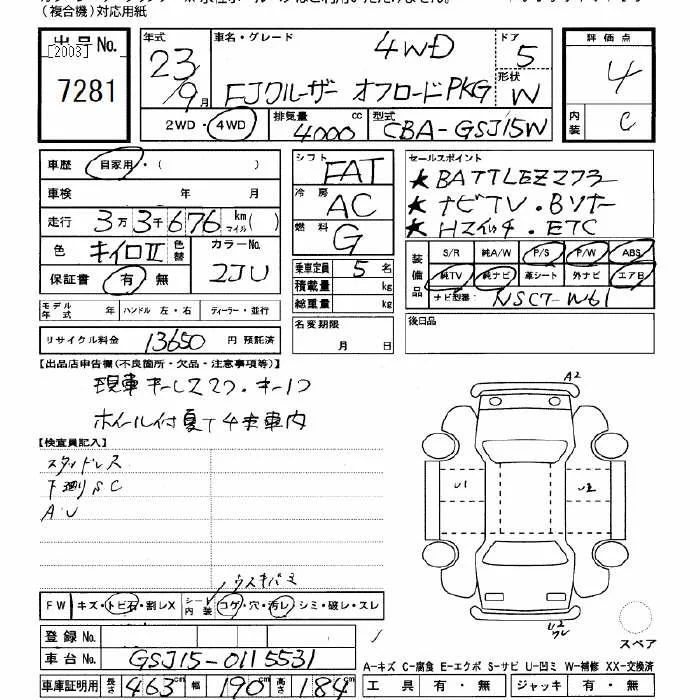 (複合機)対応用紙
出品No. [2003] 7281
年式 23年 9月
車名・グレード 4WD
FJクルーザー オフロードPKG
ドア 5
形状 W
2WD・4WD 排気量 4000cc 型式 CBA-GSJ15W
評価点 4
内装 C
車歴 自家用・( )
車検 年 月
走行 3万3千676km マイル( )
色 キイロⅡ 色替 カラーNo. 2JU
保証書 有・無
シフト FAT
冷房 AC
燃料 G
乗車定員 5名
積載量 kg
総重量 kg
セールスポイント
★BATTLEZ273
★ナビTV・Bソナー
★Hスイッチ・ETC
装備品 S/R 純A/W P/S P/W ABS
純TV 純ナビ 革シート 外ナビ エアB
ナビ型番 NSCT-W61
モデル年式 年 ハンドル 左・右 ディーラー・並行
名変期限 月 日
後日品
リサイクル料金 13650円 預託済
【出品店申告欄(不良箇所・欠品・注意事項等)】
現車キーレス2ケ・キー1ケ
ホイール付夏T4本車内
【検査員記入】
スタッドレス
下廻りSC
AU
A2
U1
U2
ウスキバミ
FW キズ・トビ石・割レX シート内装 コゲ・穴・汚レ・シミ・破レ・スレ
スペア
登録No.
車台No. GSJ15-0115531
車庫証明用 長さ 463cm 幅 190cm 高さ 184cm
A-キズ C-腐食 E-エクボ S-サビ U-凹ミ W-補修 XX-交換済
工具 有・無 ジャッキ 有・無